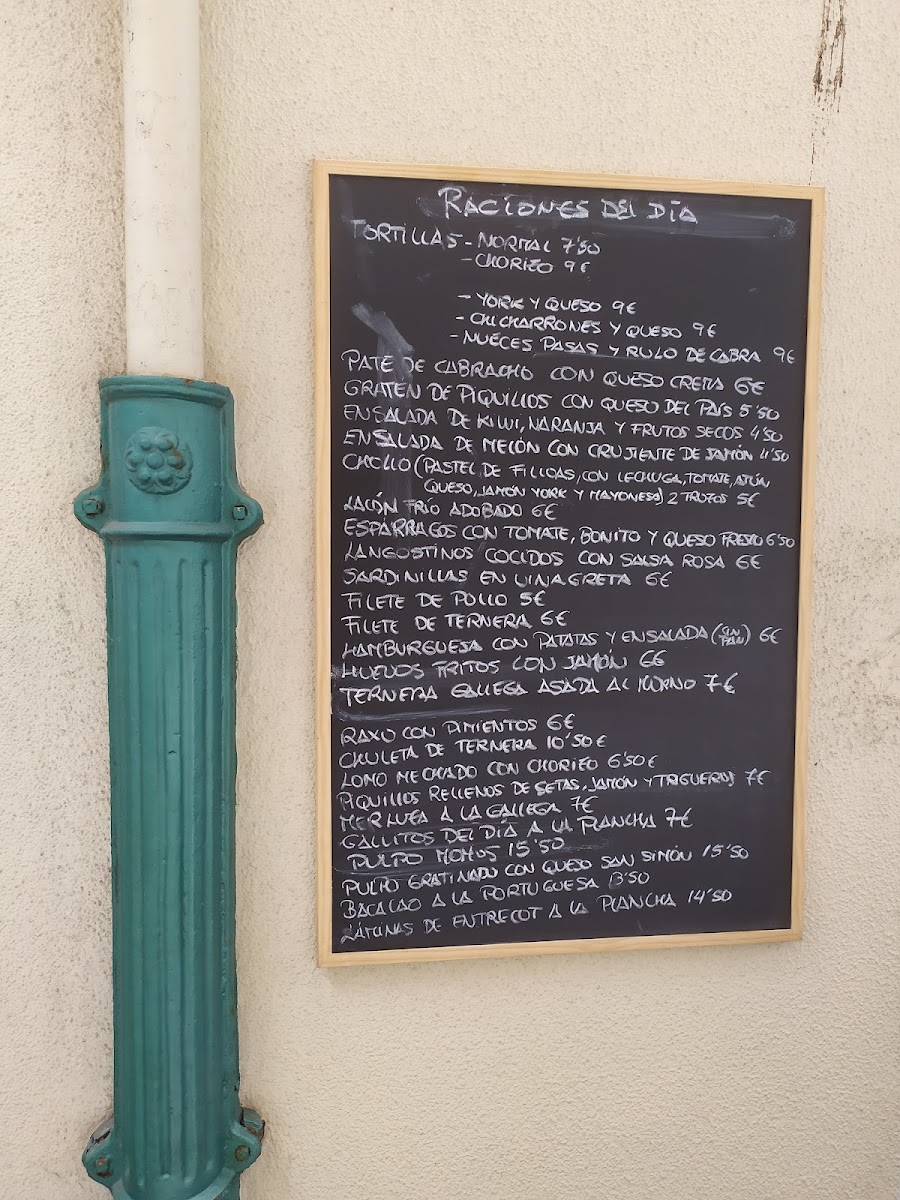 RACIONES DEL DÍA
TORTILLAS - NORMAL 7'50
- CHORIZO 9€
- YORK Y QUESO 9€
- CHICHARRONES Y QUESO 9€
- NUECES PASAS Y RULO DE CABRA 9€
PATE DE CABRACHO CON QUESO CREMA 6€
GRATEN DE PIQUILLOS CON QUESO DEL PAÍS 5'50
ENSALADA DE KIWI, NARANJA Y FRUTOS SECOS 4'50
ENSALADA DE MELÓN CON CRUJIENTE DE JAMÓN 4'50
CHOLLO (PASTEL DE FILLOAS, CON LECHUGA, TOMATE, ATÚN
QUESO, JAMÓN YORK Y MAYONESA) 2 TROZOS 5€
LACÓN FRÍO ADOBADO 6€
ESPÁRRAGOS CON TOMATE, BONITO Y QUESO FRESCO 6'50
LANGOSTINOS COCIDOS CON SALSA ROSA 6€
SARDINILLAS EN VINAGRETA 6€
FILETE DE POLLO 5€
FILETE DE TERNERA 6€
HAMBURGUESA CON PATATAS Y ENSALADA (SIN PAN) 6€
HUEVOS FRITOS CON JAMÓN 6€
TERNERA GALLEGA ASADA AL HORNO 7€
RAXO CON PIMIENTOS 6€
CHULETA DE TERNERA 10'50€
LOMO MECHADO CON CHORIZO 6'50€
PIQUILLOS RELLENOS DE SETAS, JAMÓN Y TRIGUEROS 7€
MERLUZA A LA GALLEGA 7€
GALLITOS DEL DÍA A LA PLANCHA 7€
PULPO MOMOS 15'50
PULPO GRATINADO CON QUESO SAN SIMÓN 15'50
BACALAO A LA PORTUGUESA 13'50
LÁMINAS DE ENTRECOT A LA PLANCHA 14'50